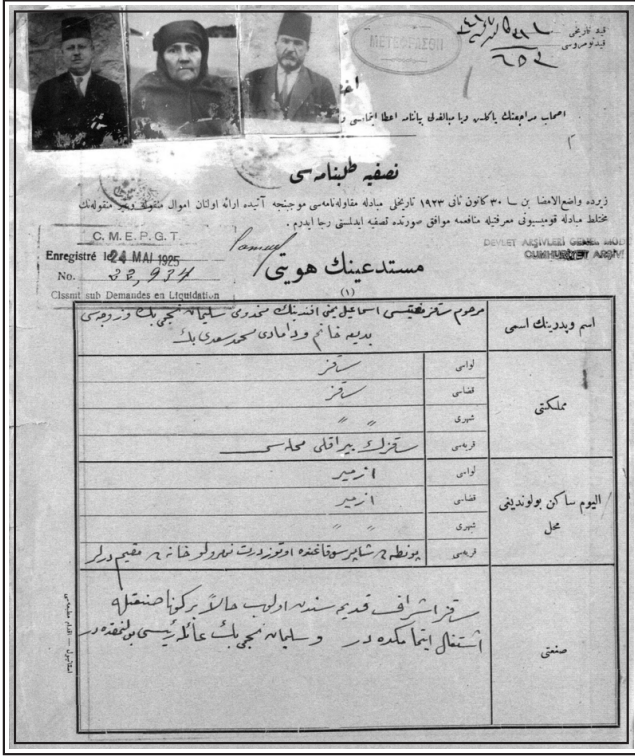 قيد تاريخى
قيد نومروسى
METEOFRASON
اصحاب مراجعتك ياكلش ويا مبالغه‌لى بياننامه اعطا ايتمامسى
تصفيه طلبنامه سى
زيرده واضع‌الامضا بن سا ٣٠ كانون ثانى ١٩٢٣ تاريخلى مبادله مقاوله‌نامه‌سى موجبنجه آتيده ارائه اولنان اموال منقوله وغير منقوله‌نك
مختلط مبادله قوميسيونى معرفتيله منافعمه موافق صورتده تصفيه ايدلسنى رجا ايدرم .
C. M. E. P. G. T.
Enregistré le 24 MAI 1925
No. 32,934
Classmt sub Demandes en Liquidation
DEVLET ARŞİVLERİ GENEL MÜD
CUMHURİYET ARŞİVİ
مستدعينك هويتى
(١)
اسم وپدرينك اسمى
مرحوم ساقز مفتيسى اسماعيل افندينك مخدومى سليمان بك وزوجه‌سى
بديعه خانم ودامادى محمد سعدى بك
مملكتى
لواسى ساقز
قضاسى ساقز
شهرى " "
قريه‌سى ساقزك بيراقلى محله‌سى
اليوم ساكن بولونديغى محل
لواسى ازمير
قضاسى ازمير
شهرى " "
قريه‌سى پونطه ده سوقاغنده اوتوز درت نومرولو خانه ده مقيمدرلر
صنعتى
ساقز اشراف قديمه‌سندن اولوب حالا بر كونا صنعتله
اشتغال ايتمامكده در وسليمان بك عائله رئيسى بولنمقده در
استانبول — اقدام مطبعه‌سى